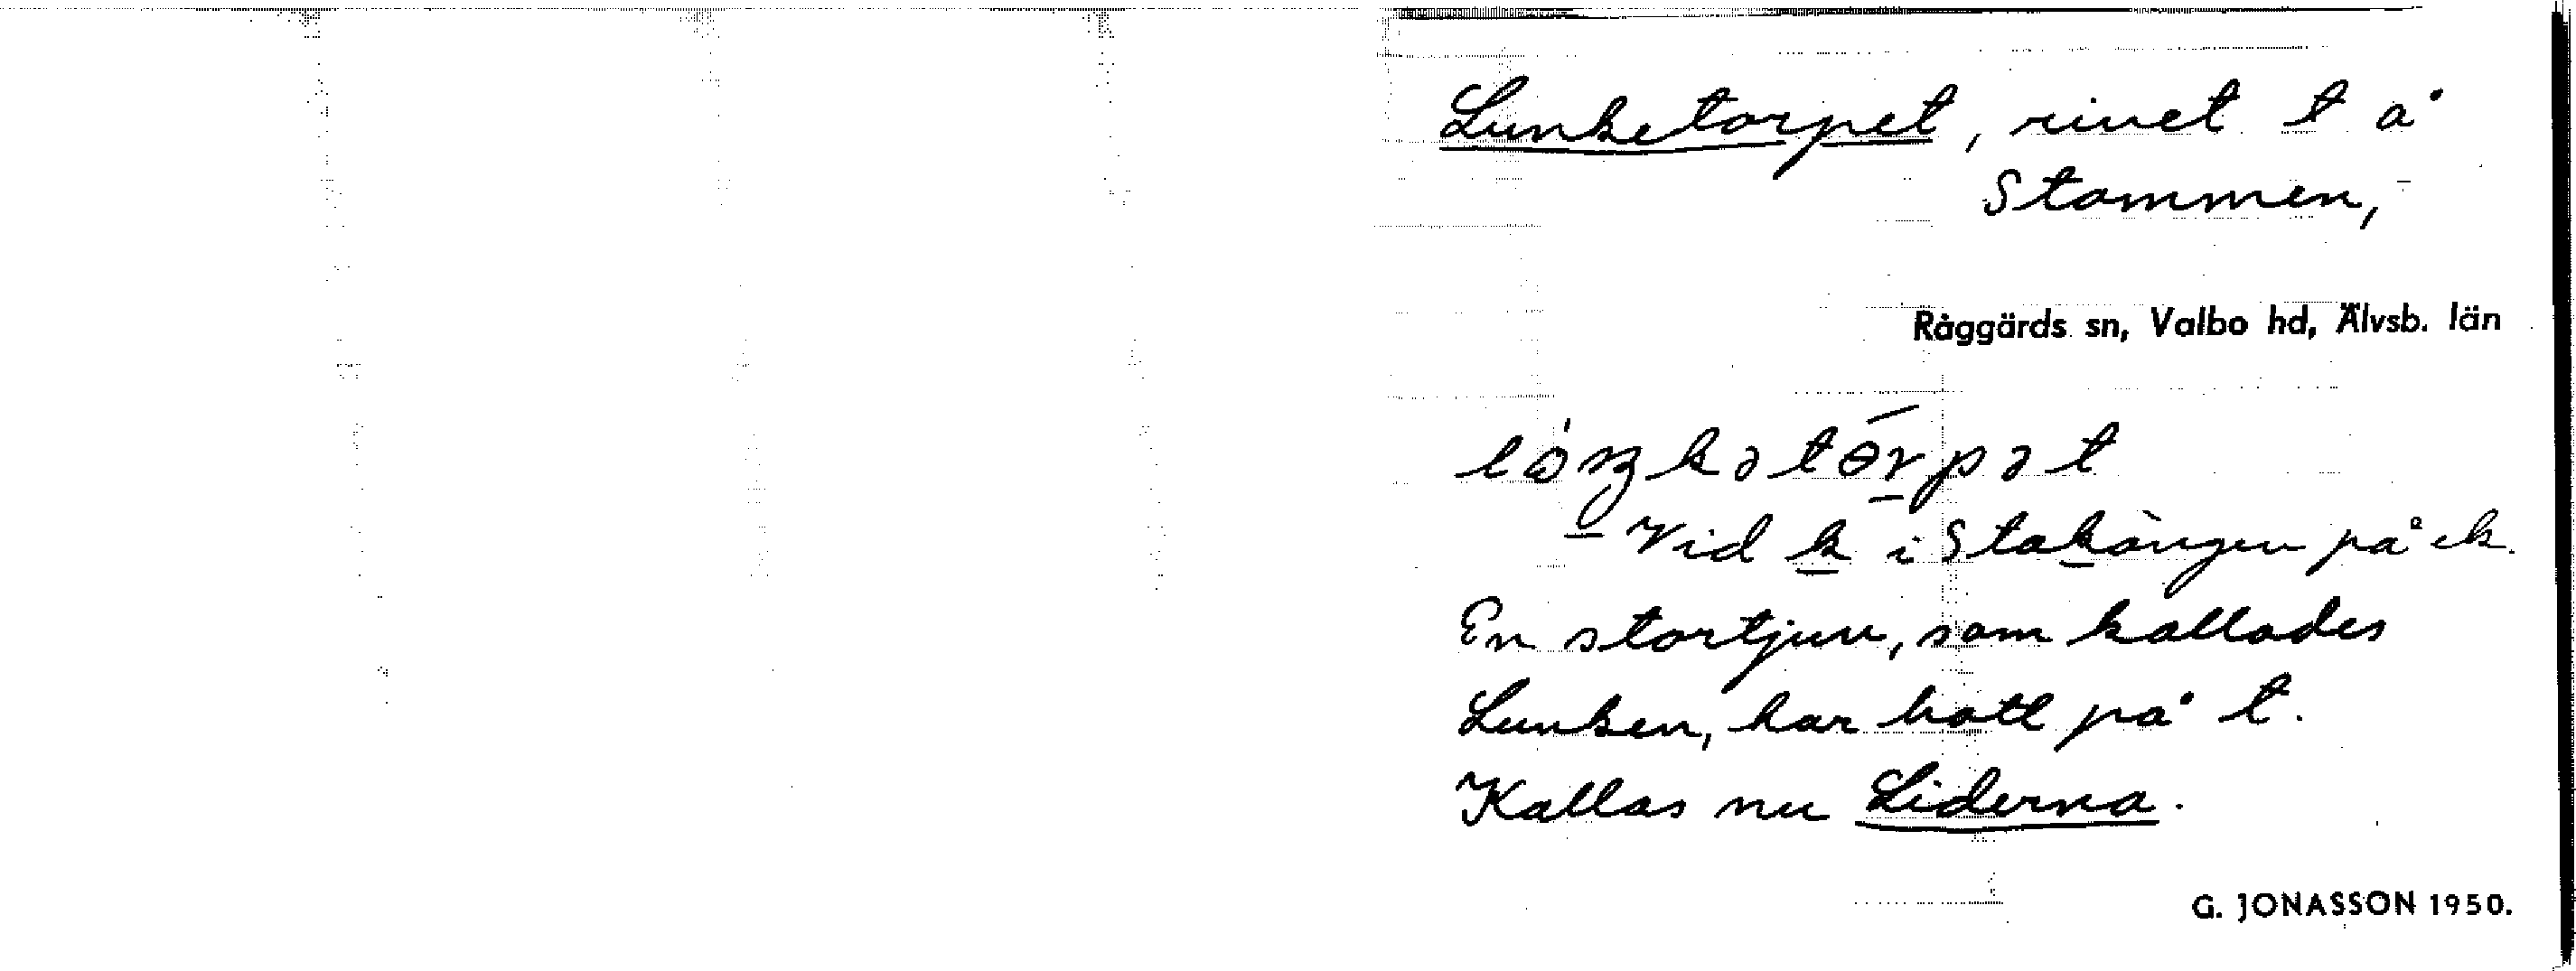 Lunketorpet, rivet t å
Stommen,
Råggärds sn, Valbo hd, Älvsb. län
Vid k i Stakängen på ek.
En stortjuv, som kallades
Lunken, har bott på t.
Kallas nu Liderna.
G. JONASSON 1950.